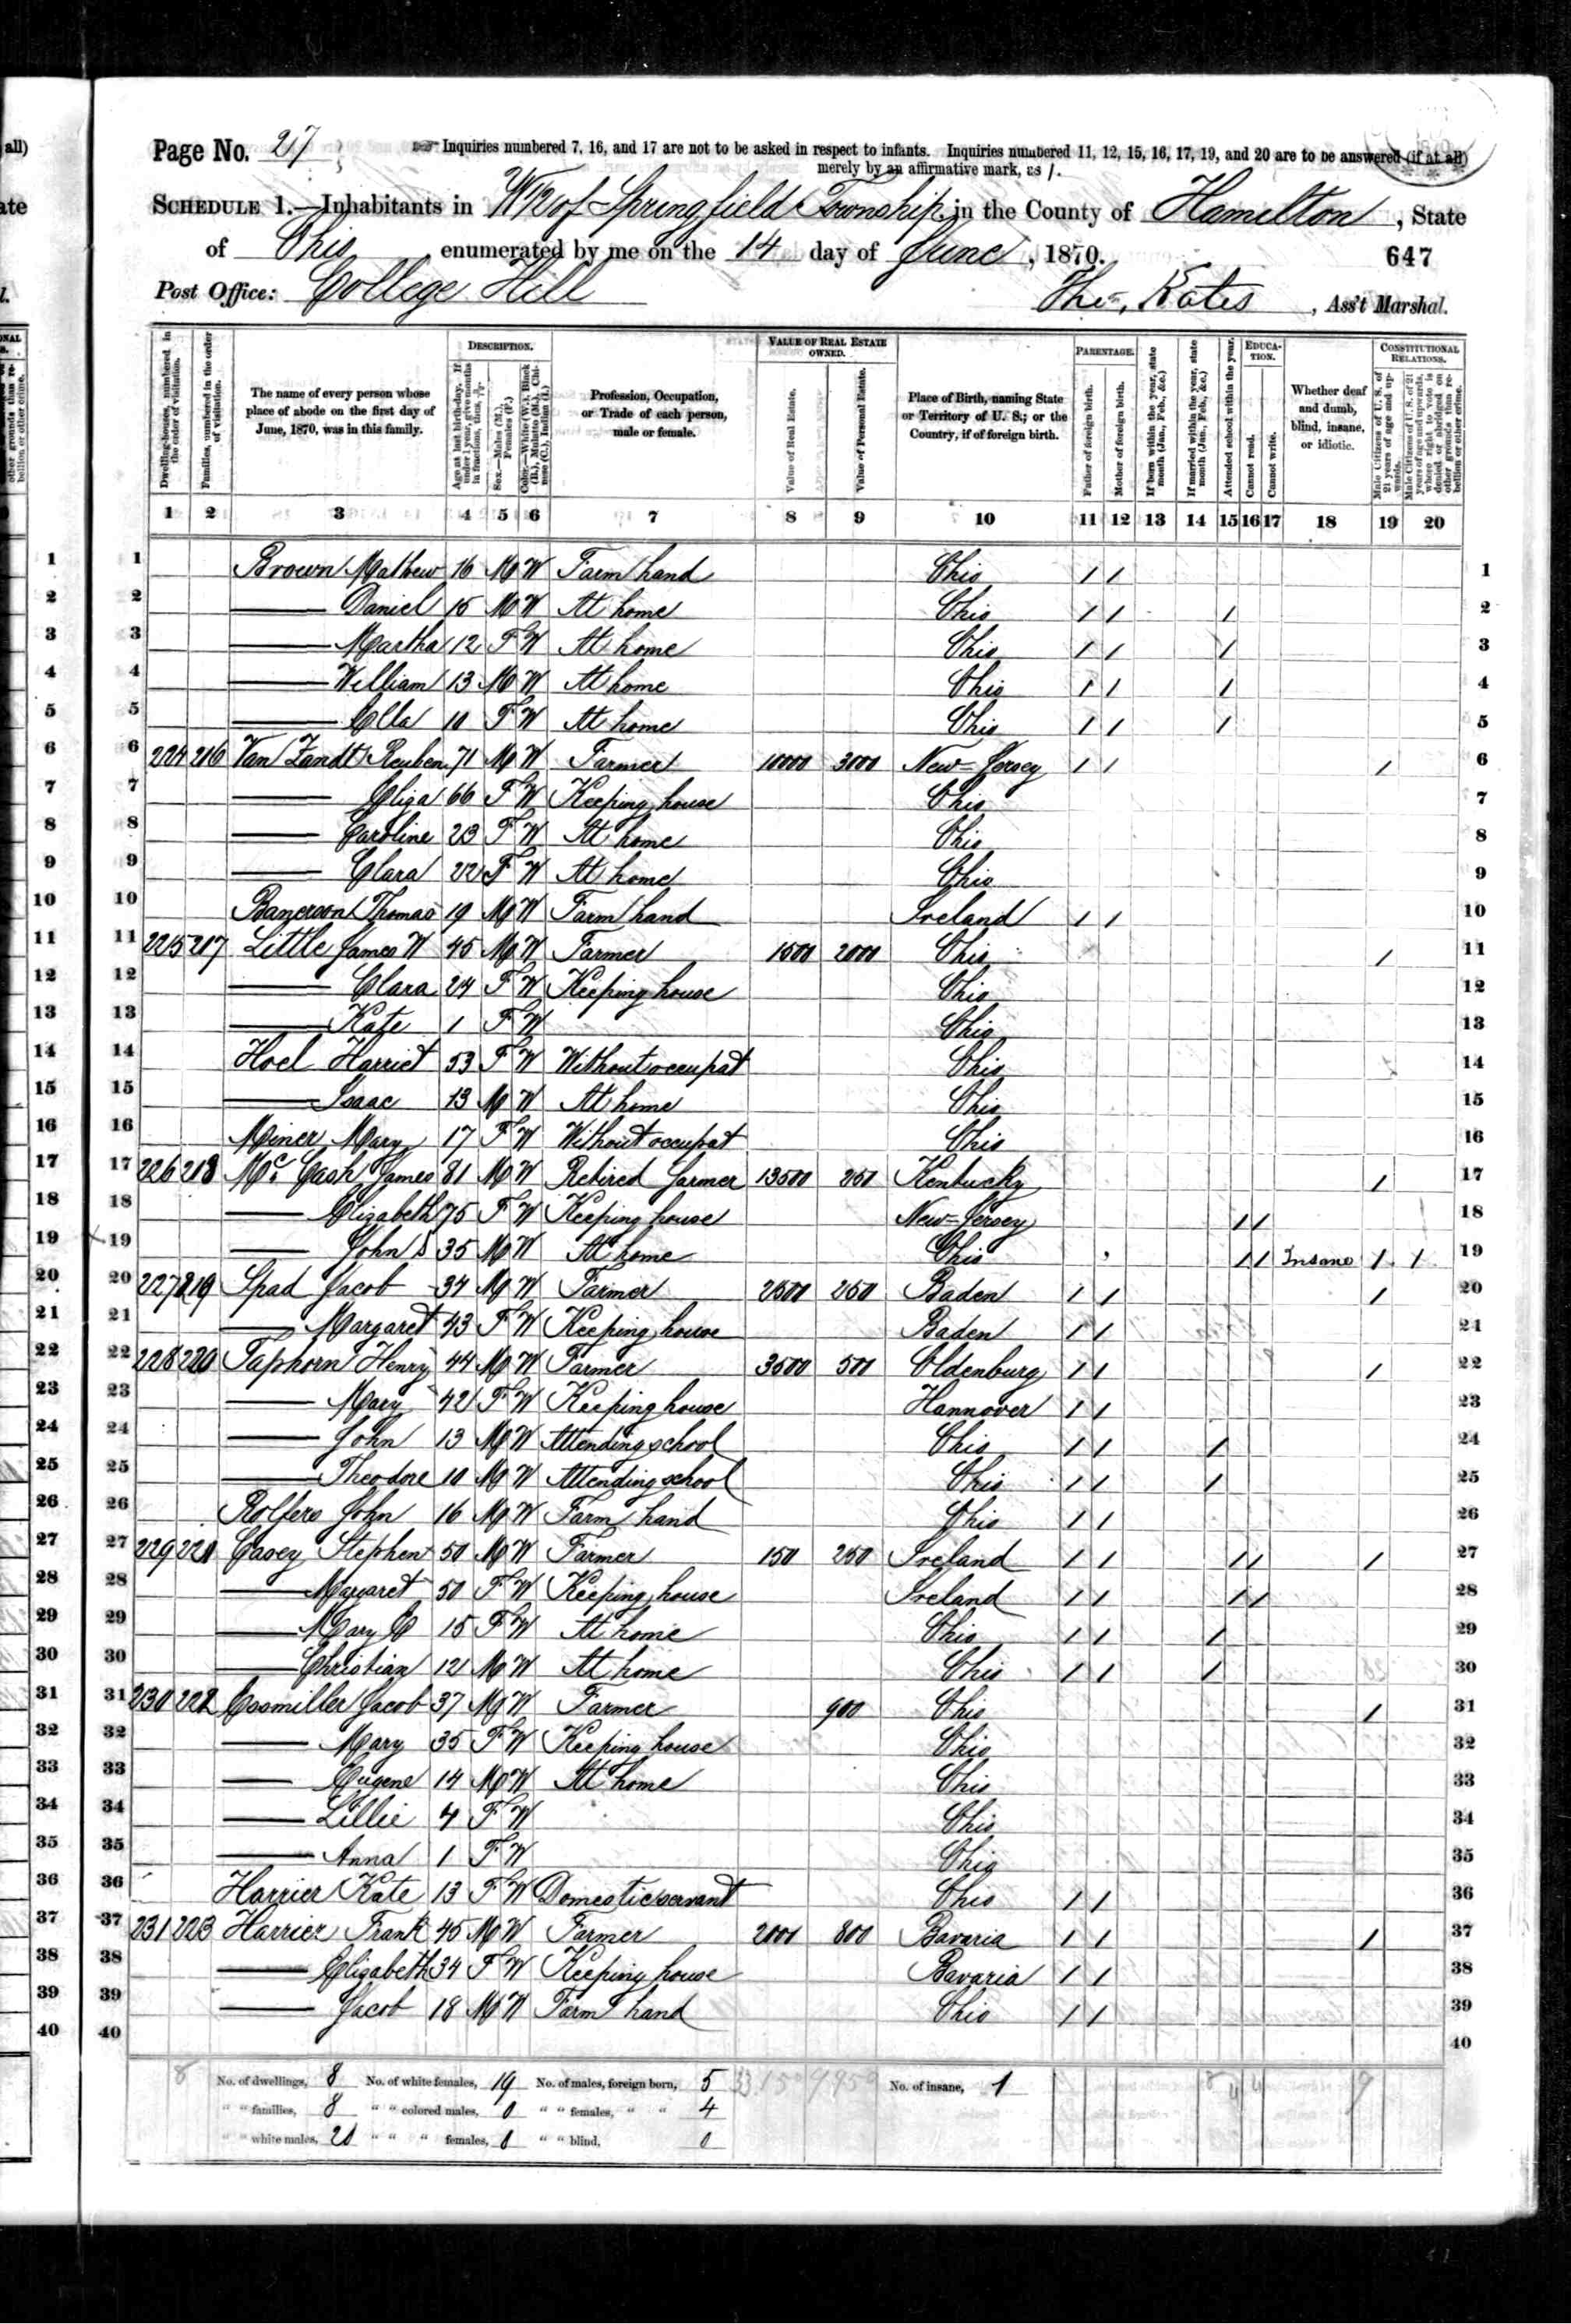 all)
ate
Page No. 27
Inquiries numbered 7, 16, and 17 are not to be asked in respect to infants. Inquiries numbered 11, 12, 15, 16, 17, 19, and 20 are to be answered (if at all)
merely by an affirmative mark, as /.
SCHEDULE 1.—Inhabitants in W 1/2 of Springfield Township, in the County of Hamilton, State
of Ohio enumerated by me on the 14 day of June, 1870. 647
Post Office: College Hill Ths. Kates, Ass't Marshal.
Dwelling-houses, numbered in the order of visitation.
Families, numbered in the order of visitation.
The name of every person whose place of abode on the first day of June, 1870, was in this family.
DESCRIPTION.
Age at last birth-day. If under 1 year, give months in fractions, thus, 3/12.
Sex.—Males (M.), Females (F.)
Color.—White (W.), Black (B.), Mulatto (M.), Chinese (C.), Indian (I.)
Profession, Occupation, or Trade of each person, male or female.
VALUE OF REAL ESTATE OWNED.
Value of Real Estate.
Value of Personal Estate.
Place of Birth, naming State or Territory of U. S.; or the Country, if of foreign birth.
PARENTAGE.
Father of foreign birth.
Mother of foreign birth.
If born within the year, state month (Jan., Feb., &c.)
If married within the year, state month (Jan., Feb., &c.)
Attended school within the year.
EDUCATION.
Cannot read.
Cannot write.
Whether deaf and dumb, blind, insane, or idiotic.
CONSTITUTIONAL RELATIONS.
Male Citizens of U. S. of 21 years of age and upwards.
Male Citizens of U. S. of 21 years of age and upwards, where right to vote is denied or abridged on other grounds than rebellion or other crime.
1 2 3 4 5 6 7 8 9 10 11 12 13 14 15 16 17 18 19 20
1 Brown Mathew 16 M W Farm hand Ohio / / 1
2 —— Daniel 15 M W At home Ohio / / / 2
3 —— Martha 12 F W At home Ohio / / / 3
4 —— William 13 M W At home Ohio / / / 4
5 —— Ella 10 F W At home Ohio / / / 5
6 224 216 Van Zandt Reuben 71 M W Farmer 10000 3000 New-Jersey / / / 6
7 —— Eliza 66 F W Keeping house Ohio 7
8 —— Caroline 23 F W At home Ohio 8
9 —— Clara 22 F W At home Ohio 9
10 Thomas 19 M W Farm hand Ireland / / 10
11 225 217 Little James W 45 M W Farmer 1500 2000 Ohio / 11
12 —— Clara 24 F W Keeping house Ohio 12
13 —— Kate 1 F W Ohio 13
14 Hoel Harriet 53 F W Without occupat Ohio 14
15 —— Isaac 13 M W At home Ohio 15
16 Miner Mary 17 F W Without occupat Ohio 16
17 226 218 Mc Cash James 81 M W Retired farmer 13500 250 Kentucky / 17
18 —— Elizabeth 75 F W Keeping house New-Jersey / / 18
19 —— John S 35 M W At home Ohio / / Insane / / 19
20 227 219 Spad Jacob 34 M W Farmer 2500 250 Baden / / / 20
21 —— Margaret 43 F W Keeping house Baden / / 21
22 228 220 Taphorn Henry 44 M W Farmer 3500 500 Oldenburg / / / 22
23 —— Mary 42 F W Keeping house Hannover / / 23
24 —— John 13 M W Attending school Ohio / / / 24
25 —— Theodore 10 M W Attending school Ohio / / / 25
26 Rolfers John 16 M W Farm hand Ohio / / 26
27 229 221 Casey Stephen 50 M W Farmer 150 250 Ireland / / / / / 27
28 —— Margaret 50 F W Keeping house Ireland / / / / 28
29 —— Mary C 15 F W At home Ohio / / / 29
30 —— Christian 12 M W At home Ohio / / / 30
31 230 222 Cosmiller Jacob 37 M W Farmer 900 Ohio / 31
32 —— Mary 35 F W Keeping house Ohio 32
33 —— Eugene 14 M W At home Ohio 33
34 —— Lillie 4 F W Ohio 34
35 —— Anna 1 F W Ohio 35
36 Harrier Kate 13 F W Domestic servant Ohio / / 36
37 231 223 Harrier Frank 45 M W Farmer 2000 800 Bavaria / / / 37
38 —— Elizabeth 34 F W Keeping house Bavaria / / 38
39 —— Jacob 18 M W Farm hand Ohio / / 39
40 40
No. of dwellings, 8 No. of white females, 19 No. of males, foreign born, 5 33150 9950 No. of insane, 1
" " families, 8 " " colored males, 0 " " females, " " 4
" " white males, 20 " " " females, 0 " " blind, 0